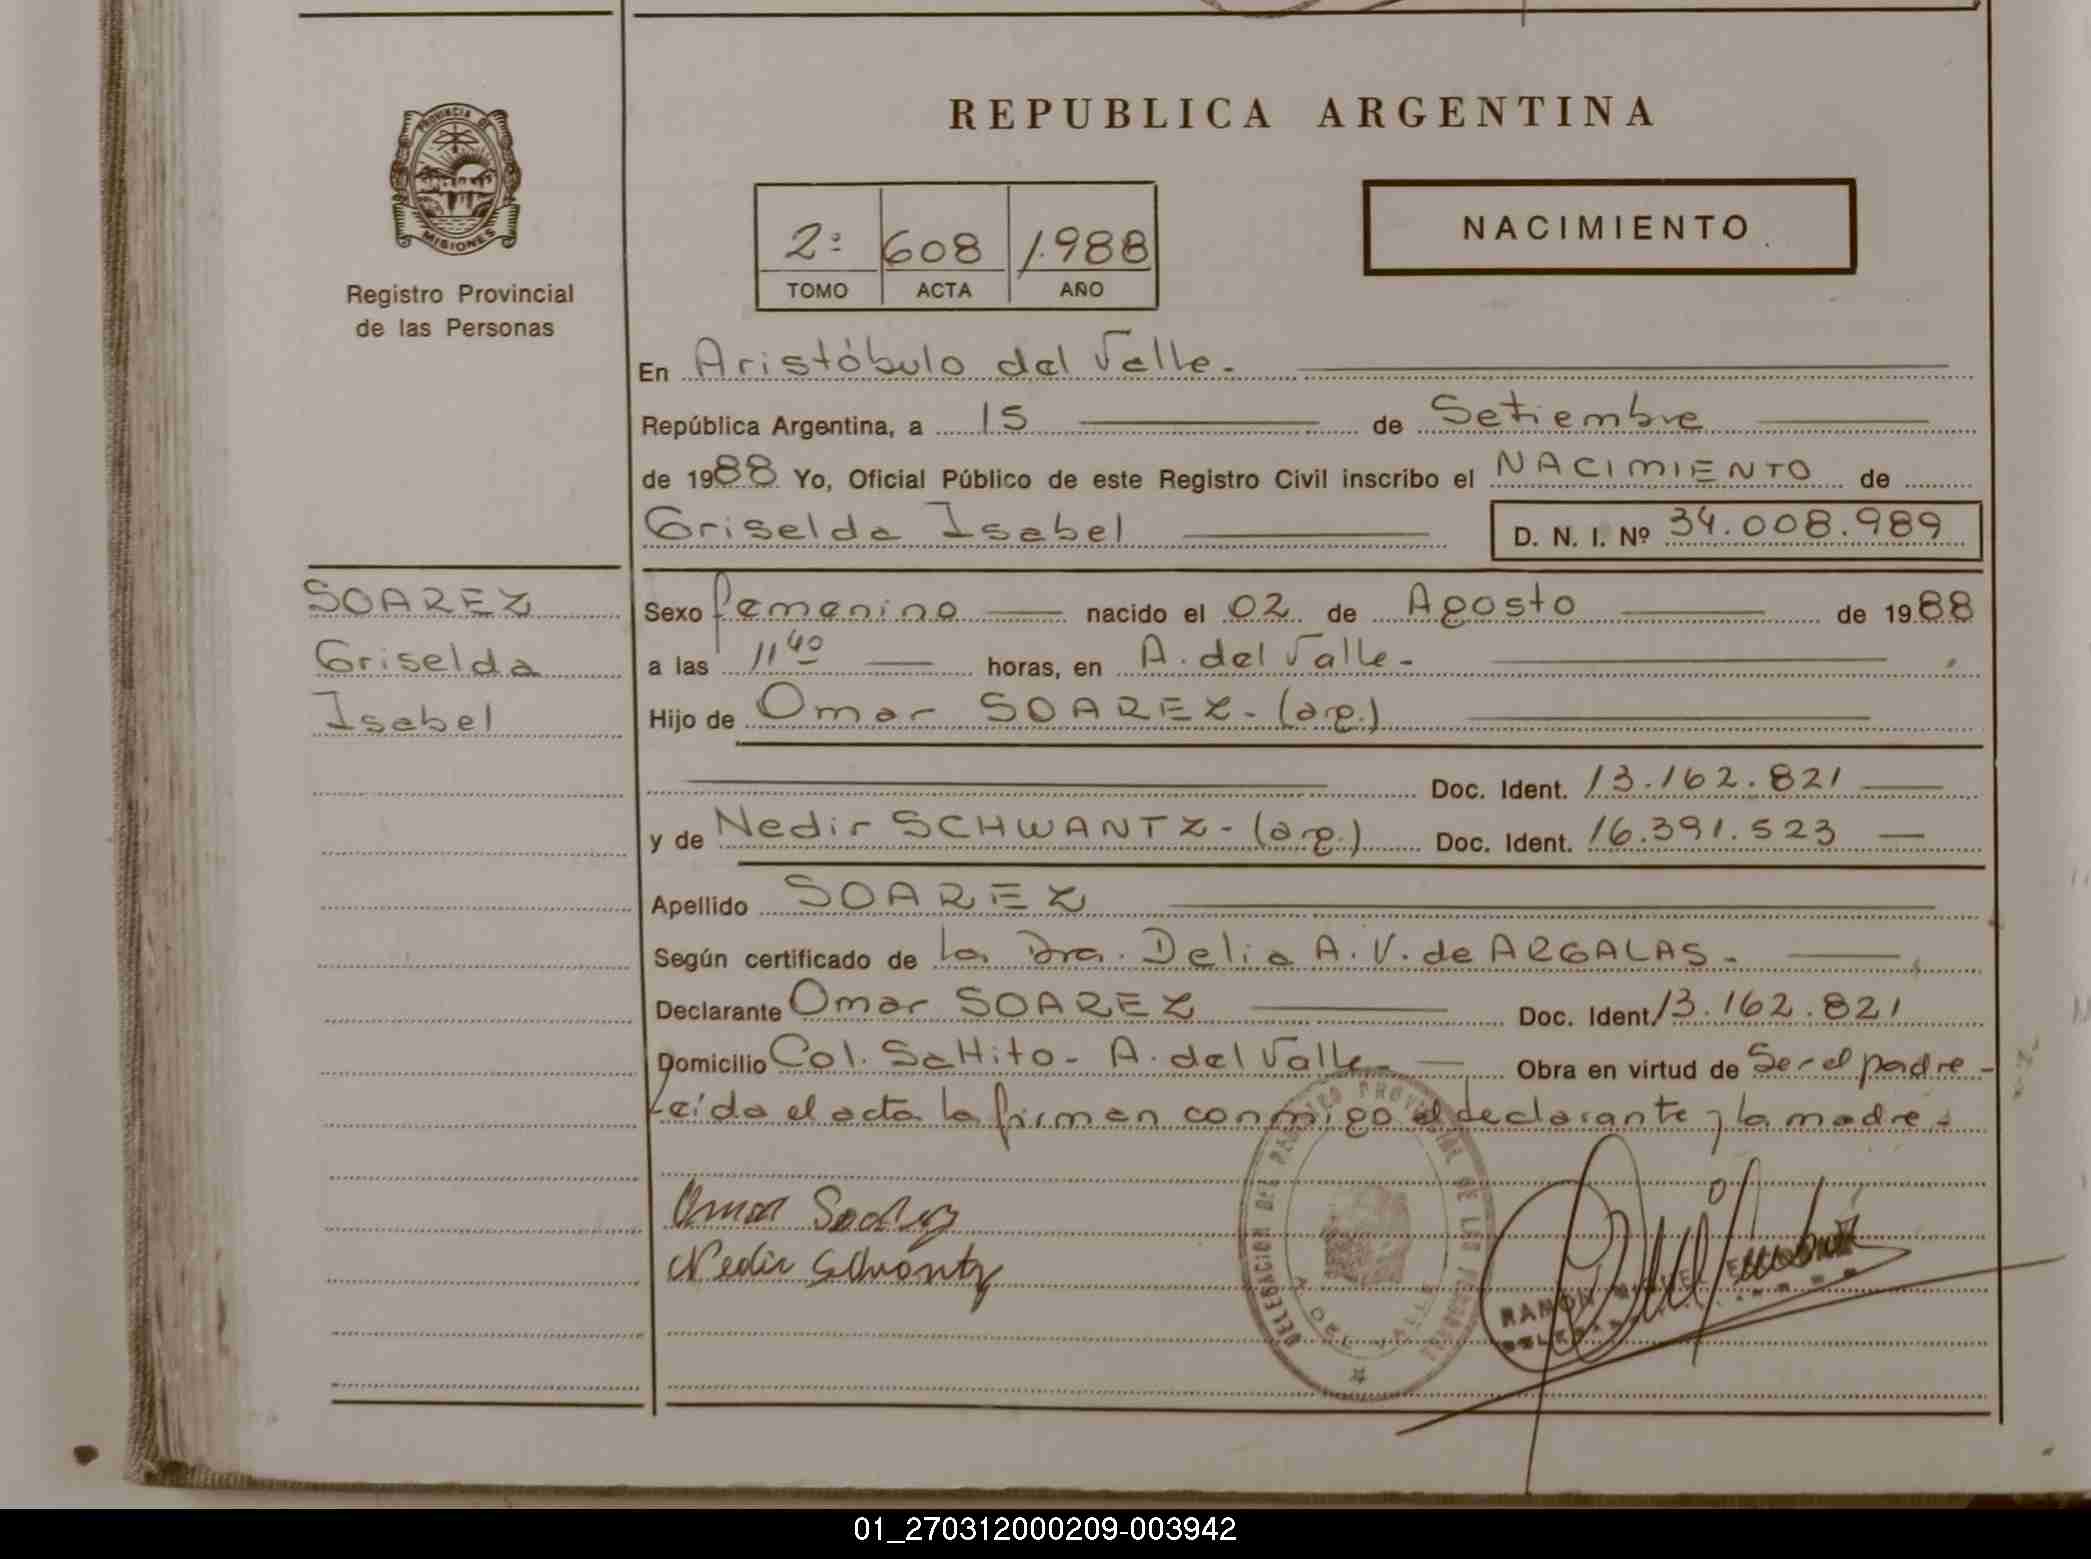 REPUBLICA ARGENTINA
PROVINCIA DE
MISIONES
Registro Provincial
de las Personas
2º 608 1.988
TOMO ACTA AÑO
NACIMIENTO
En Aristóbulo del Valle.
República Argentina, a 15 de Setiembre
de 1988 Yo, Oficial Público de este Registro Civil inscribo el NACIMIENTO de
Griselda Isabel D. N. I. Nº 34.008.989
SOAREZ
Griselda
Isabel
Sexo femenino nacido el 02 de Agosto de 1988
a las 11 40 horas, en A. del Valle-
Hijo de Omar SOAREZ- (arg.)
Doc. Ident. 13.162.821
y de Nedir SCHWANTZ- (arg.) Doc. Ident. 16.391.523
Apellido SOAREZ
Según certificado de la Dra. Delia A. V. de ARGALAS-
Declarante Omar SOAREZ Doc. Ident. 13.162.821
Domicilio Col. Saltito- A. del Valle- Obra en virtud de Ser el padre-
Leída el acta la firman conmigo el declarante y la madre-
Omar Soarez
Nedir Schwantz
DELEGACION DEL REGISTRO PROVINCIAL DE LAS PERSONAS
A. DEL VALLE
RAMON MIGUEL
01_270312000209-003942